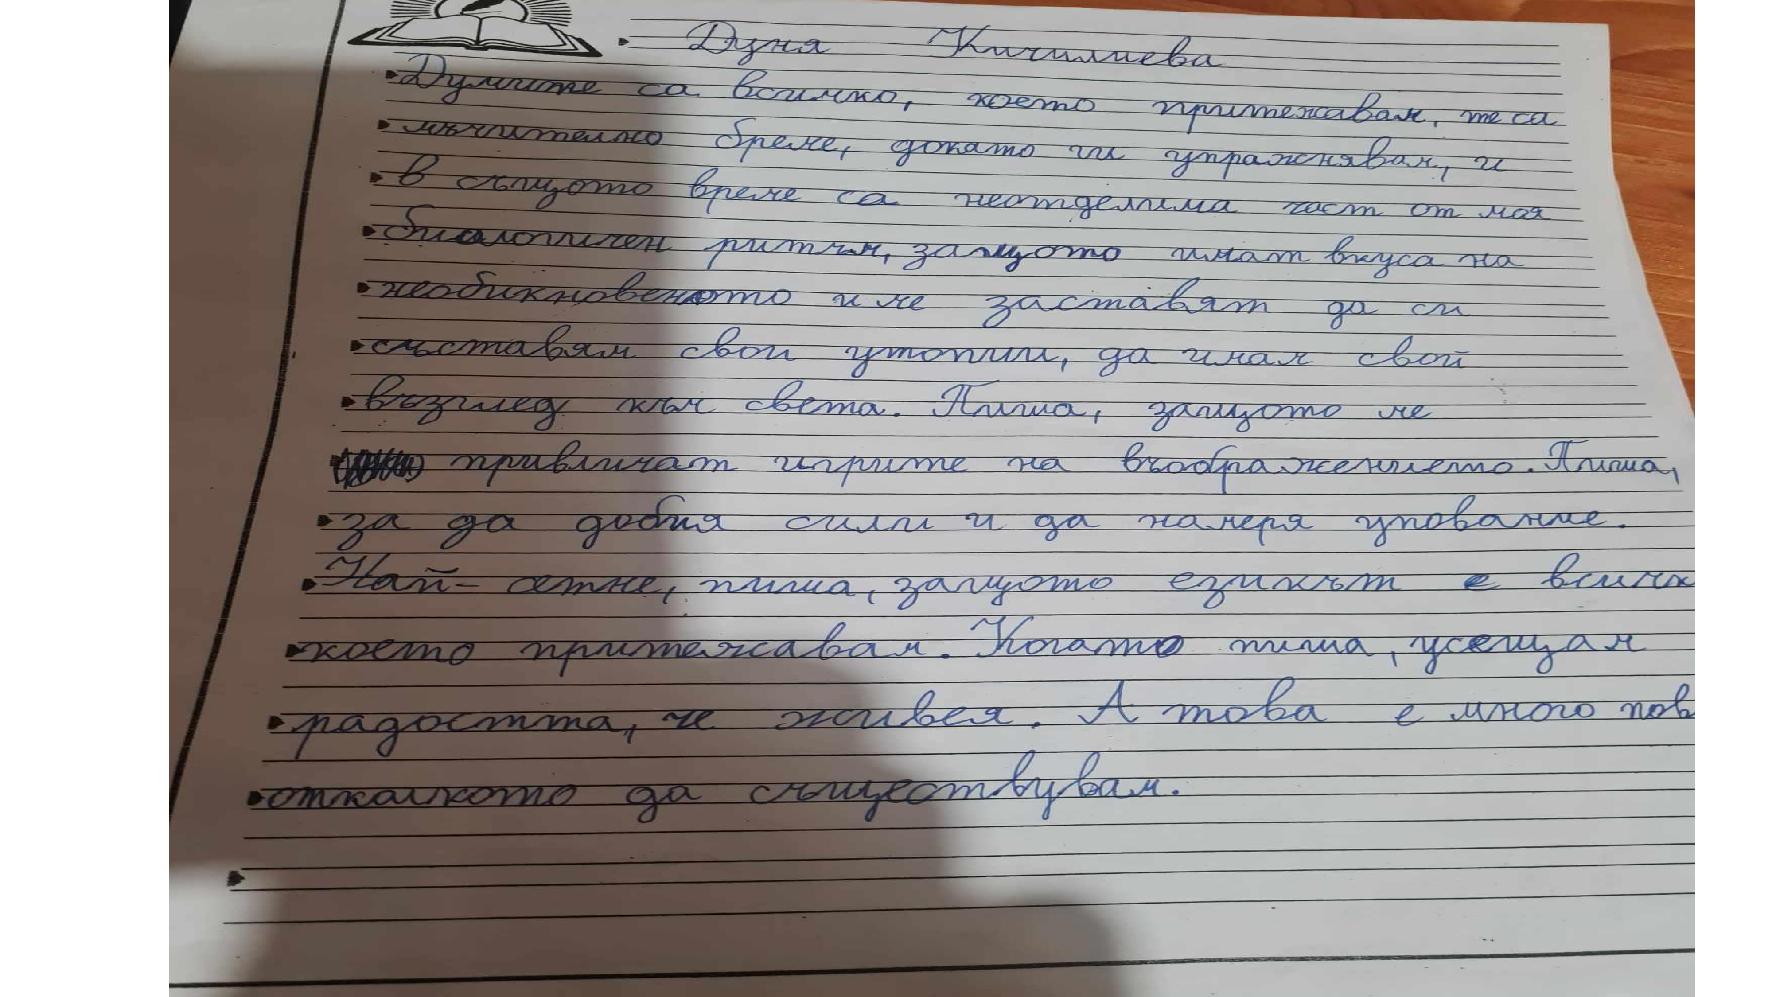 Дуня Кичилиева
Думите са всичко, което притежавам, те са
мъчително бреме, докато ги упражнявам, и
в същото време са неотделима част от моя
биологичен ритъм, защото имат вкуса на
необикновеното и ме заставят да си
съставям свои утопии, да имам свой
възглед към света. Пиша, защото ме
привличат игрите на въображението. Пиша,
за да добия сили и да намеря упование.
Най-сетне, пиша, защото езикът е всичк
което притежавам. Когато пиша, усещам
радостта, че живея. А това е много пов
отколкото да съществувам.